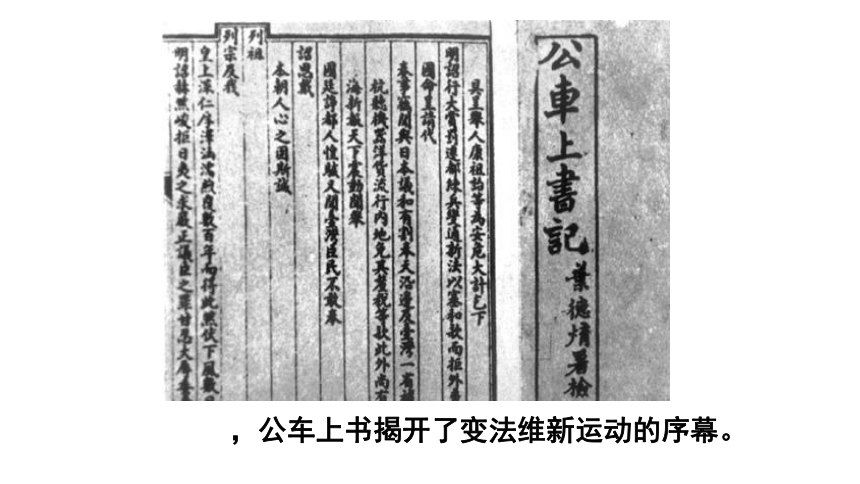 公車上書記
葉德
署檢
具呈舉人康祖詒等為安危大計乞下
明詔行大賞罰遷都練兵變通新法以塞和款而拒外
國命呈請代
奏事竊聞與日本議和有割奉天沿邊及臺灣一省補
杭聽機器洋貨流行內地免其釐稅等款此外尚有
海新報天下震動聞舉
國廷諍都人惶駭又聞臺灣臣民不敢奉
詔思戴
本朝人心之固斯誠
列祖
列宗及我
皇上深仁厚澤涵濡煦覆數百年而得此然伏下風數日
明詔赫然峻拒日夷之求嚴正議臣之罪甘忍大辱委
，公车上书揭开了变法维新运动的序幕。